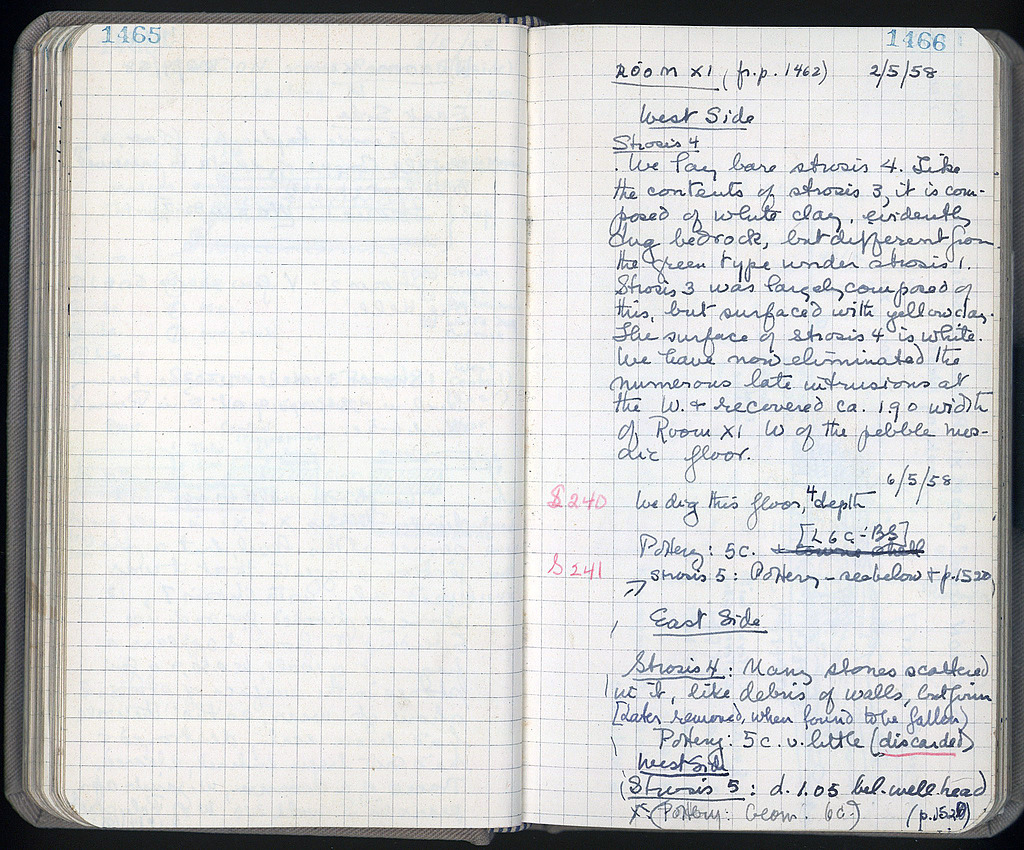 1465
1466
ROOM XI (fr. p. 1462) 2/5/58
West Side
Strosis 4
. We lay bare strosis 4. Like
the contents of strosis 3, it is com-
posed of white clay, evidently
dug bedrock, but different from
the green type under strosis 1.
Strosis 3 was largely composed of
this, but surfaced with yellow clay.
The surface of strosis 4 is white.
We have now eliminated the
numerous late intrusions at
the W. & recovered ca. 1.90 width
of Room XI W of the pebble mos-
aic floor.
6/5/58
S 240 We dig this floor, 4 depth
[L 6 c - BS]
Pottery: 5c.
S 241 strosis 5: Pottery - see below & p. 1520
East Side
Strosis 4: Many stones scattered
in it, like debris of walls, but firm
[Later removed, when found to be fallen)
Pottery: 5 c. v. little (discarded)
West Side
(Strosis 5: d. 1.05 bel. well head)
X (Pottery: Geom. 6c.) (p. 1520)